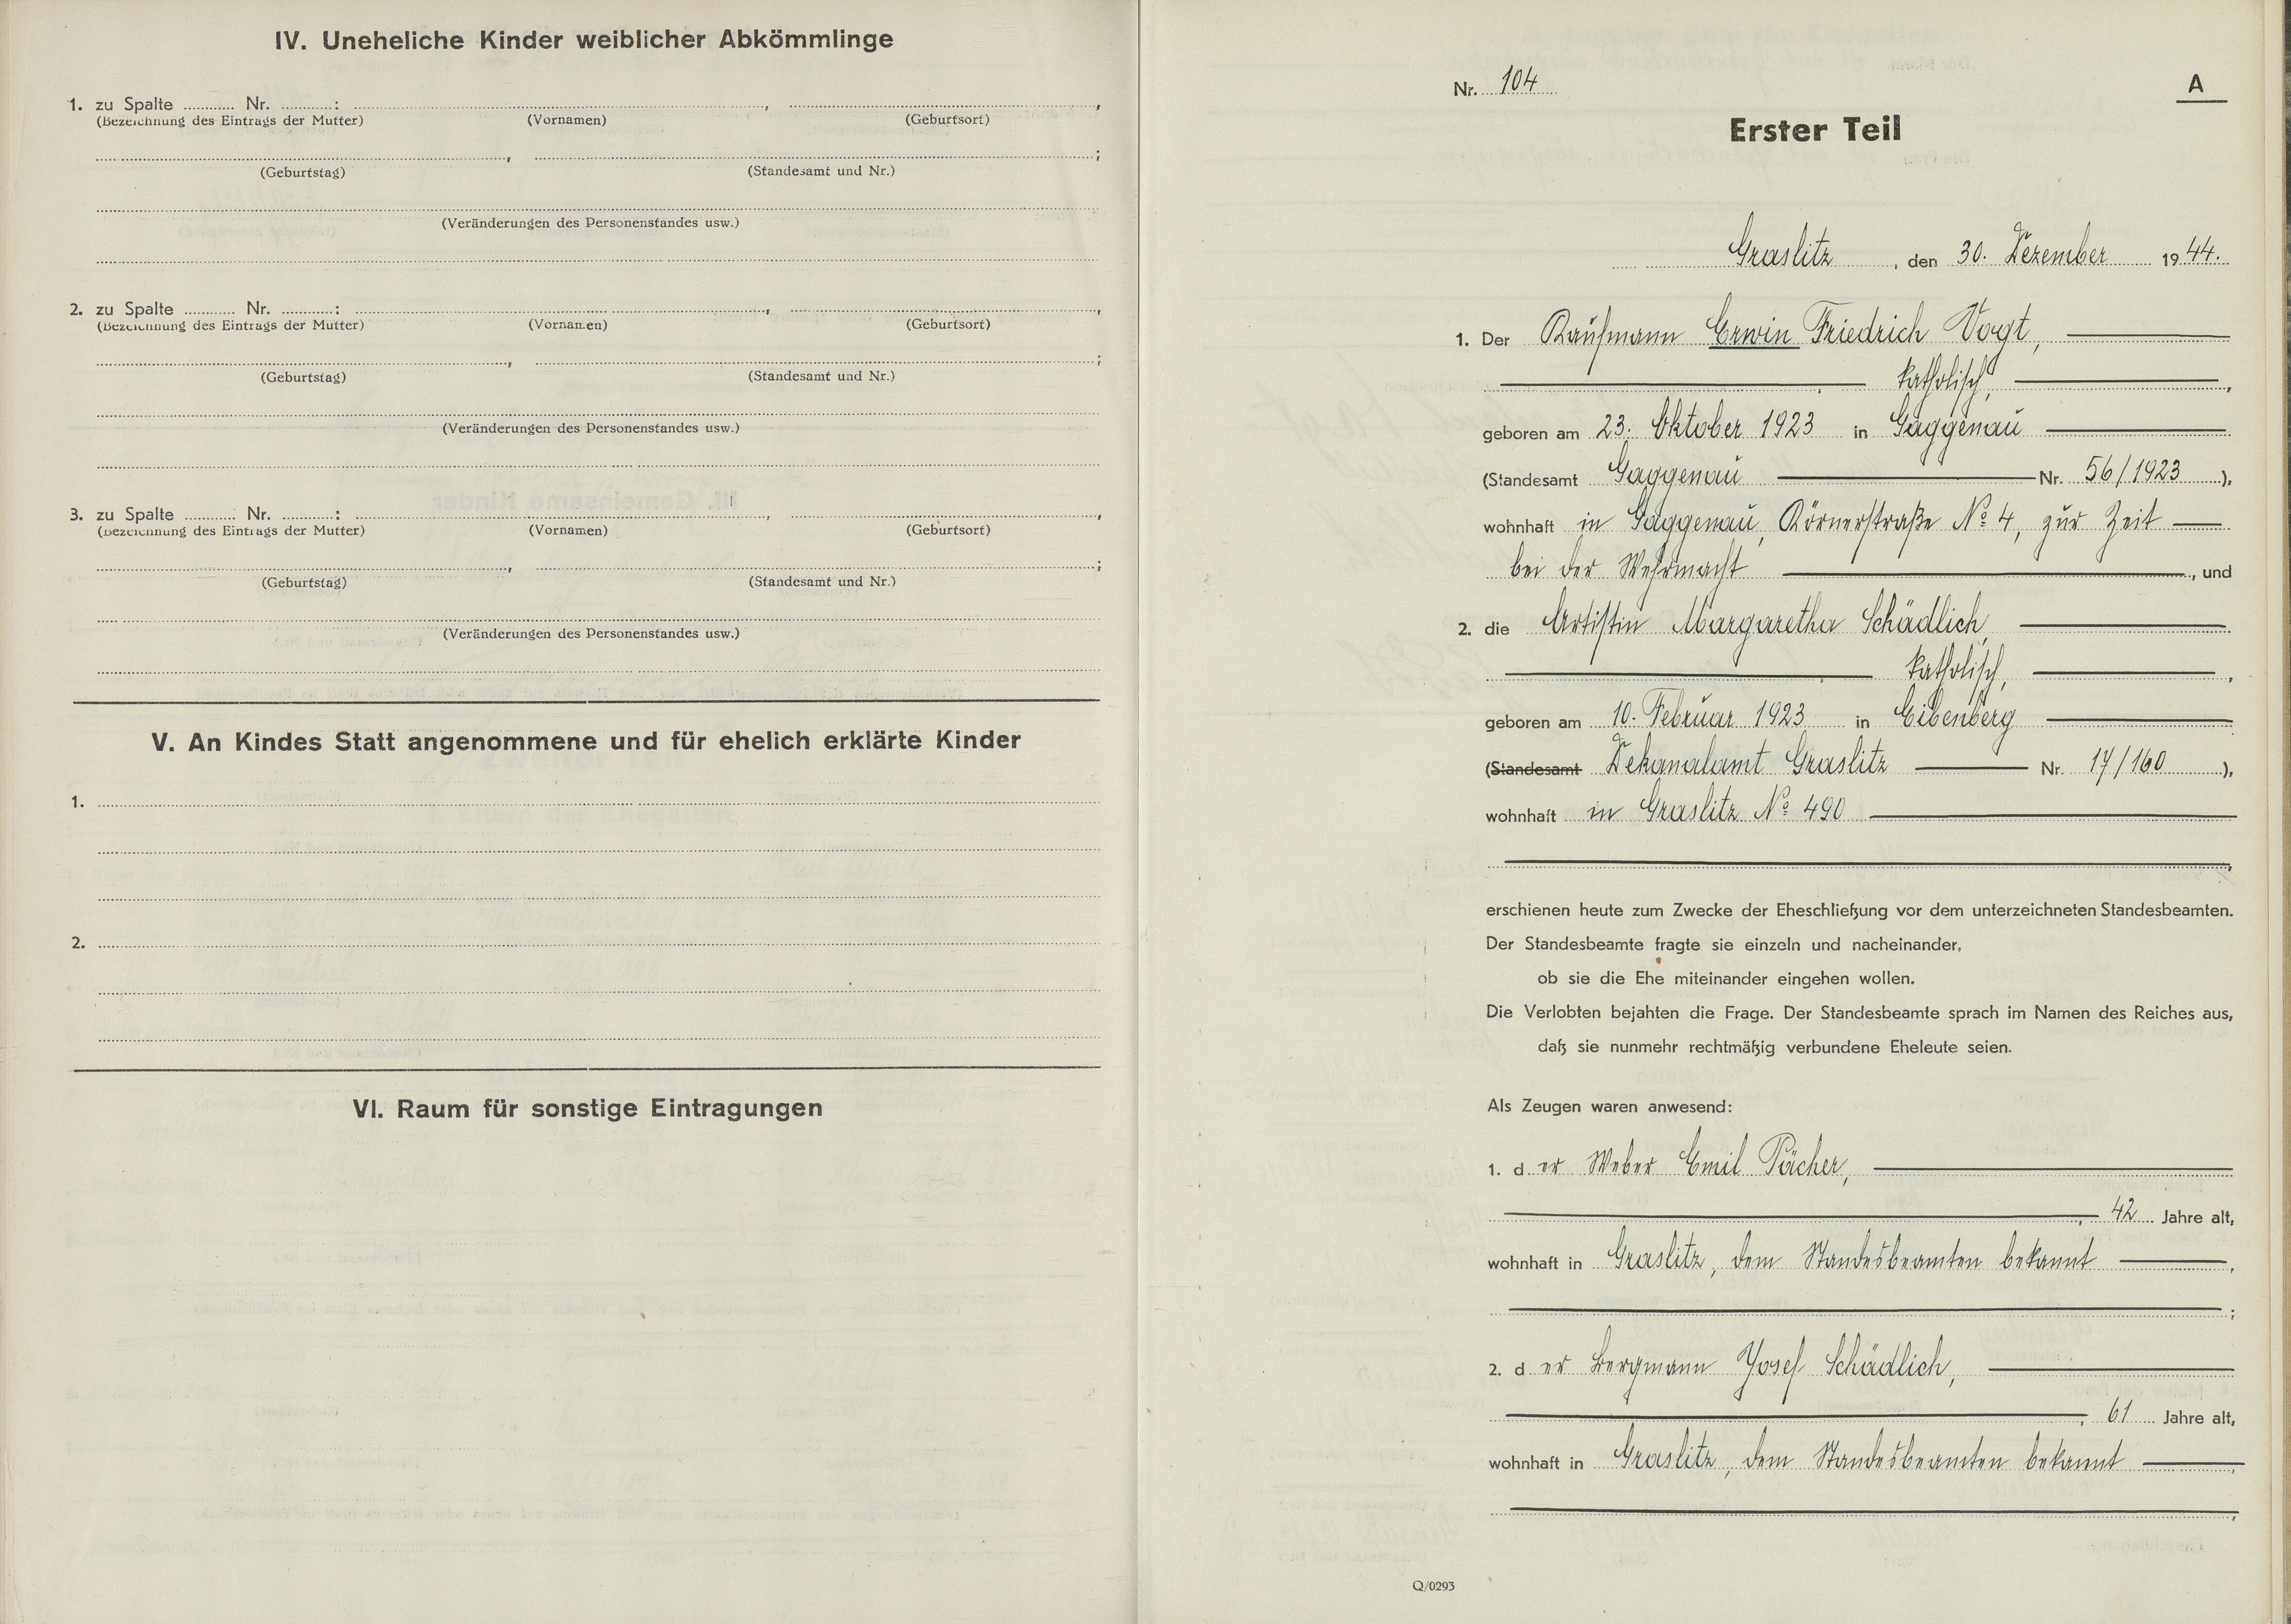 IV. Uneheliche Kinder weiblicher Abkömmlinge
1. zu Spalte ........... Nr. ...........: ,  ,
(Bezeichnung des Eintrags der Mutter) (Vornamen) (Geburtsort)
, ;
(Geburtstag) (Standesamt und Nr.)
(Veränderungen des Personenstandes usw.)
2. zu Spalte ........... Nr. ...........: ,  ,
(Bezeichnung des Eintrags der Mutter) (Vornamen) (Geburtsort)
, ;
(Geburtstag) (Standesamt und Nr.)
(Veränderungen des Personenstandes usw.)
3. zu Spalte ........... Nr. ...........: ,  ,
(Bezeichnung des Eintrags der Mutter) (Vornamen) (Geburtsort)
, ;
(Geburtstag) (Standesamt und Nr.)
(Veränderungen des Personenstandes usw.)
V. An Kindes Statt angenommene und für ehelich erklärte Kinder
1.
2.
VI. Raum für sonstige Eintragungen
Nr. 104
A
Erster Teil
Graslitz, den 30. Dezember 1944.
1. Der Kaufmann Erwin Friedrich Vogt,
katholisch,
geboren am 23. Oktober 1923 in Gaggenau
(Standesamt Gaggenau Nr. 56/1923),
wohnhaft in Gaggenau, Körnerstraße No 4, zur Zeit
bei der Wehrmacht, und
2. die Artistin Margaretha Schädlich,
katholisch,
geboren am 10. Februar 1923 in Eibenberg
(Standesamt Dekanalamt Graslitz Nr. 17/160),
wohnhaft in Graslitz No 490
,
erschienen heute zum Zwecke der Eheschließung vor dem unterzeichneten Standesbeamten.
Der Standesbeamte fragte sie einzeln und nacheinander,
ob sie die Ehe miteinander eingehen wollen.
Die Verlobten bejahten die Frage. Der Standesbeamte sprach im Namen des Reiches aus,
daß sie nunmehr rechtmäßig verbundene Eheleute seien.
Als Zeugen waren anwesend:
1. der Weber Emil Pächer,
, 42 Jahre alt,
wohnhaft in Graslitz, dem Standesbeamten bekannt,
;
2. der Bergmann Josef Schädlich,
, 61 Jahre alt,
wohnhaft in Graslitz, dem Standesbeamten bekannt,
,
Q/0293